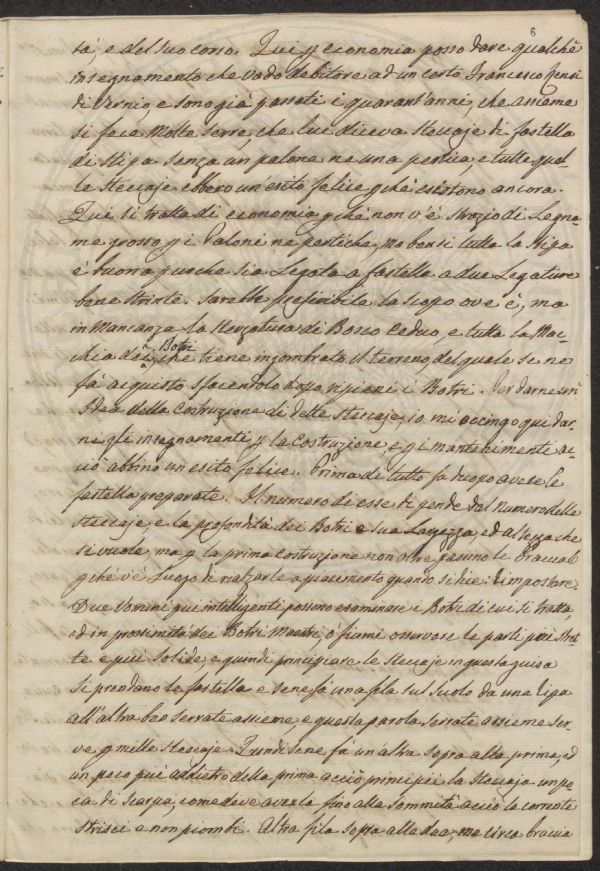 6
tà, e del suo corso. Qui p economia posso dare qualchè
insegnamento che vado debitore ad un certo Francesco
di Vernio, e sono già passati i quarant'anni, che assieme
si fece Molte serre, che lui diceva Steccaje di fastella
di Stipa senza un palone ne una pertica, e tutte quel-
le Steccaje ebbero un'esito felice p chè esistono ancora.
Qui si tratta di economia p chè non v'è strazio di Legna-
me grosso p i Paloni ne pertiche, ma bensi tutta la Stipa
è buona purche sia Legata a fastella a due Legature
bene strinte. Sarebbe preferibile la scopo ove è, ma
in Mancanza la Sterzatura di Bosco Ceduo, e tutta la Mac-
chia dei Botri, che tiene ingombrato il terreno, del quale se ne
fà acquisto sfacendolo dopo ripieni i Botri. Per darne un
Idea della Costruzione di dette Steccaje, io mi accingo qui dar-
ne gli insegnamenti p la Costruzione, e p i mantenimenti ac-
ciò abbino un esito felice. Prima di tutto fa duopo avere le
fastella preparate. Il numero di esse dipende dal Numero delle
Steccaje, e la profondità dei Botri e sua Largezza, ed altezza che
si vuole, ma p la prima costruzione non oltre passino le Braccia 6
p chè v'è Luogo di rialzarle a piacimento quando si
Due Uomini piu intelligenti possono esaminare i Botri di cui si tratta,
ed in prossimità dei Botri Maestri o fiumi osservare le parti più Stret-
te e più Solide, e quindi principiare le Steccaje in questa guisa
si prendano le fastella e se ne fà una fila sul Suolo da una Ripa
all'altra ben serrate assieme, e questa parola serrate assieme ser-
ve p mille Steccaje. Quindi se ne fà un'altra sopra alla prima, ed
un poco più addietro della prima acciò principii la Steccaja un po-
ca di Scarpa, come deve averla fino alla sommità acciò la corrente
strisci e non piombi. Altra fila sopra alle due, ma circa braccia